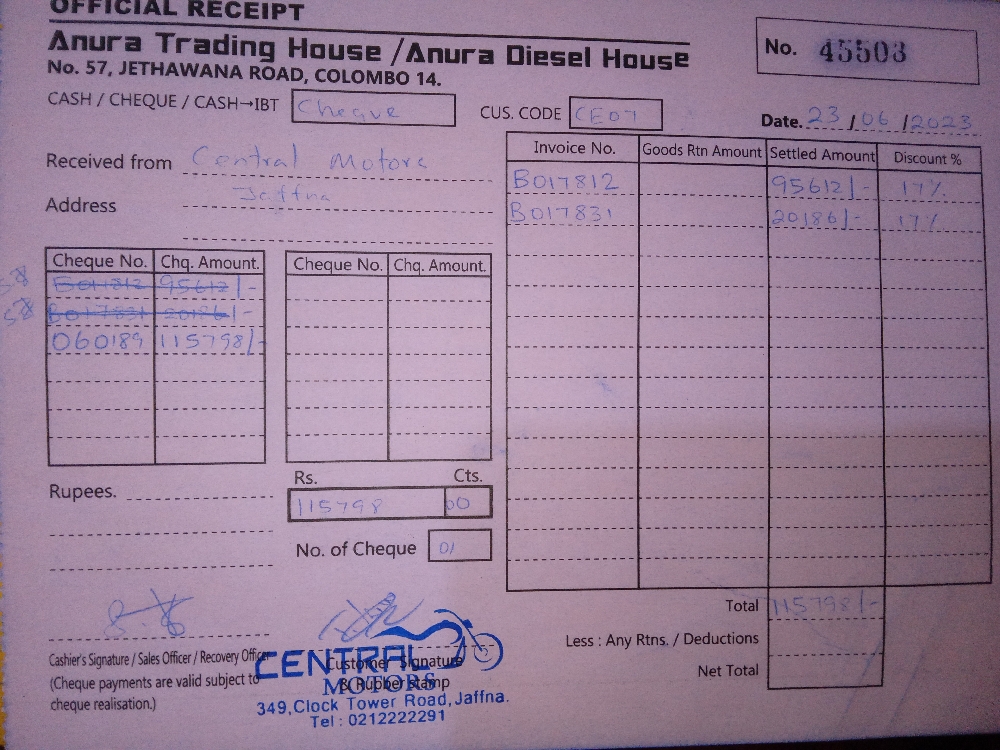 OFFICIAL RECEIPT
Anura Trading House /Anura Diesel House
No. 57, JETHAWANA ROAD, COLOMBO 14.
No. 45503
CASH / CHEQUE / CASH→IBT Cheque
CUS. CODE CE07
Date. 23 / 06 / 2023
Received from Central Motors
Address Jaffna
Invoice No. Goods Rtn Amount Settled Amount Discount %
B017812 95612/- 17%
B017831 20186/- 17%
Cheque No. Chq. Amount. Cheque No. Chq. Amount.
B017812 95612/-
B017831 20186/-
060189 115798/-
Rupees.
Rs. Cts.
115798 00
No. of Cheque 01
Total 115798/-
Less : Any Rtns. / Deductions
Net Total
Cashier's Signature / Sales Officer / Recovery Officer
(Cheque payments are valid subject to
cheque realisation.)
Customer Signature
& Rubber stamp
CENTRAL
MOTORS
349,Clock Tower Road,Jaffna.
Tel : 0212222291